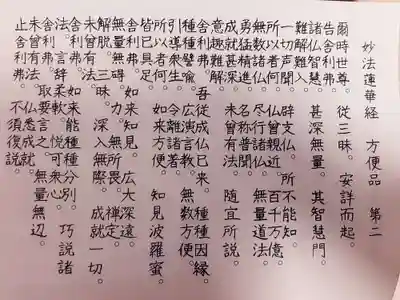 妙法蓮華経 方便品 第二
爾時世尊。従三昧。安詳而起。
告舎利弗。
諸仏智慧。甚深無量。其智慧門。
難解難入。
一切声聞。辟支仏。所不能知。
所以者何。仏曾親近。百千万億。
無数諸仏。尽行諸仏。無量道法。
勇猛精進。名称普聞。
成就甚深。未曾有法。随宜所説。
意趣難解。
舎利弗。吾従成仏已来。種種因縁。
種種譬喩。広演言教。無数方便。
引導衆生。令離諸著。
所以者何。如来方便。知見波羅蜜。
皆已具足。
舎利弗。如来知見。広大深遠。
無量無礙。力。無所畏。禅定。
解脱。三昧。深入無際。成就一切。
未曾有法。
舎利弗。如来能種種分別。巧説諸
法。言辞柔軟。悦可衆心。
舎利弗。取要言之。無量無辺。
未曾有法。仏悉成就。
止舎利弗。不須復説。